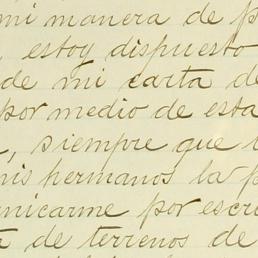 mi manera de p
, estoy dispuesto
de mi carta de
por medio de esta
, siempre que
mis hermanos la p
nicarme por escri
de terrenos de